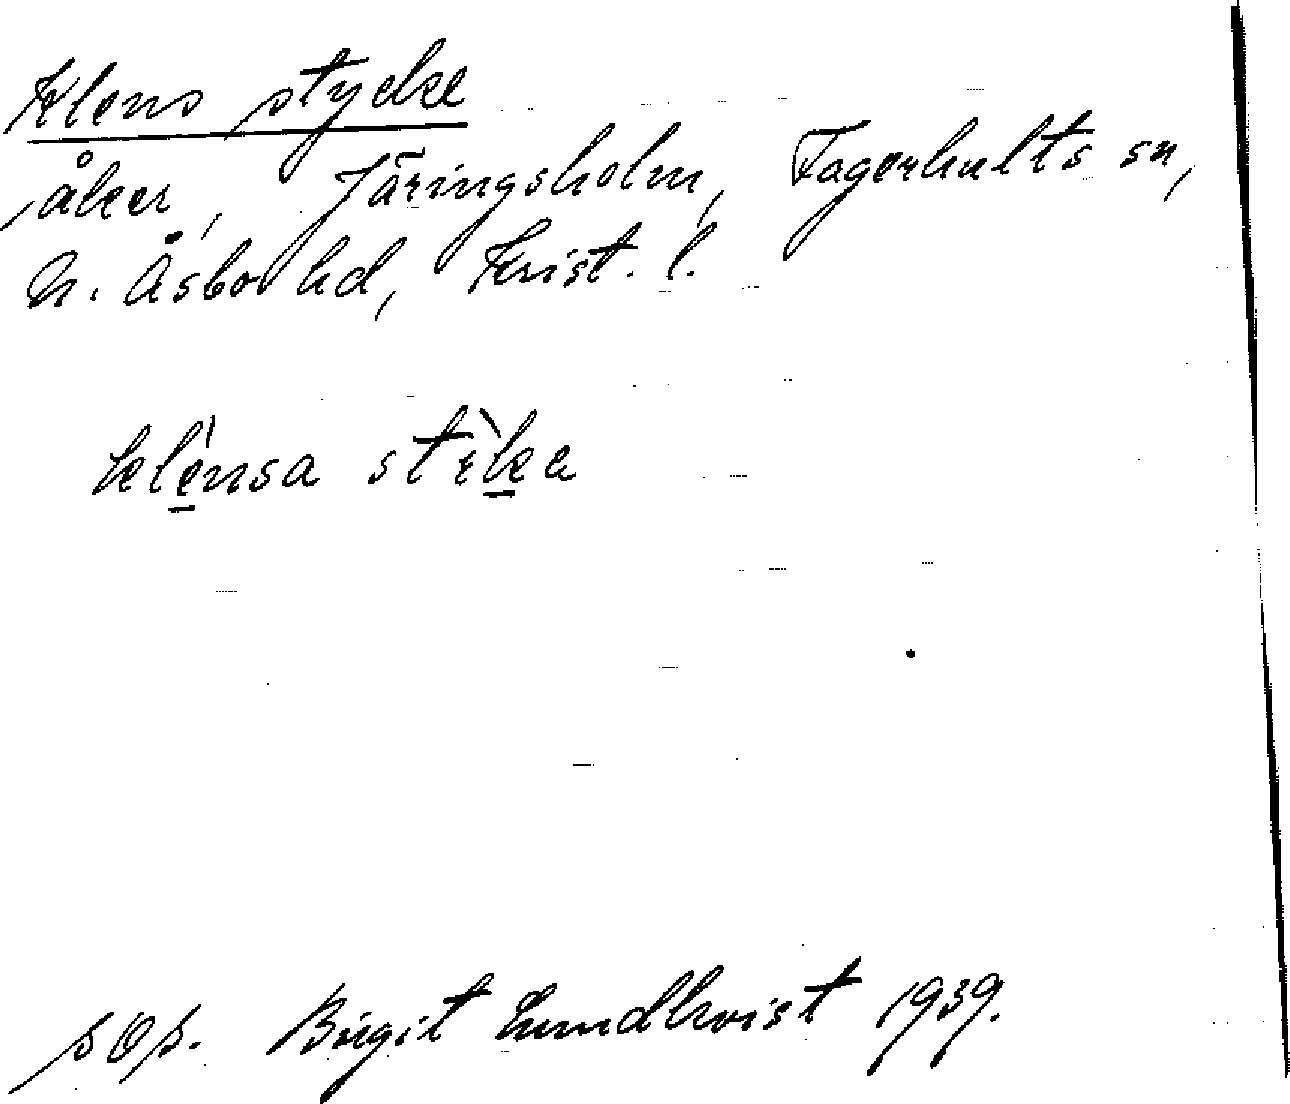 Klens stycke
åker, Järingsholm, Fagerhults sn,
N. Åsbo hd, Krist. l.
klensa stÿka
Birgit Lundkvist 1939.